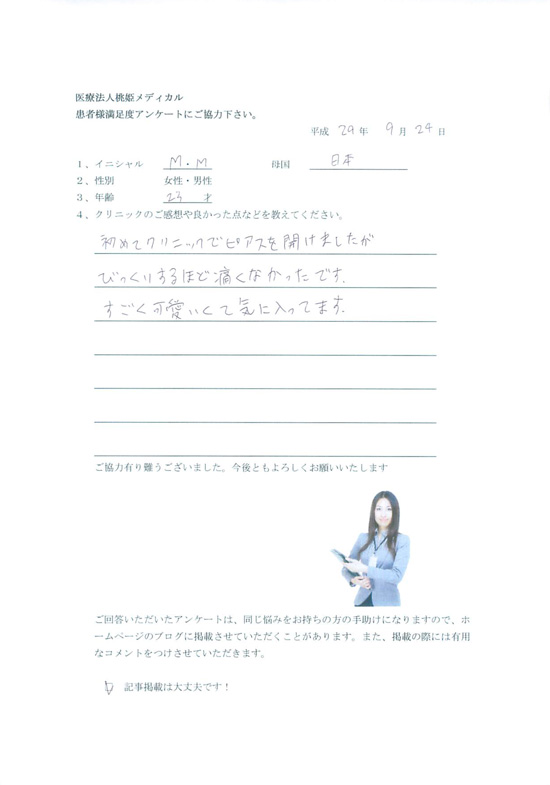 医療法人桃姫メディカル
患者様満足度アンケートにご協力下さい。
平成 29 年 9 月 24 日
1、イニシャル M.M 母国 日本
2、性別 女性・男性
3、年齢 23 才
4、クリニックのご感想や良かった点などを教えてください。
初めてクリニックでピアスを開けましたが
びっくりするほど痛くなかったです.
すごく可愛いくて気に入ってます.
ご協力有り難うございました。今後ともよろしくお願いいたします
ご回答いただいたアンケートは、同じ悩みをお持ちの方の手助けになりますので、ホ
ームページのブログに掲載させていただくことがあります。また、掲載の際には有用
なコメントをつけさせていただきます。
記事掲載は大丈夫です！